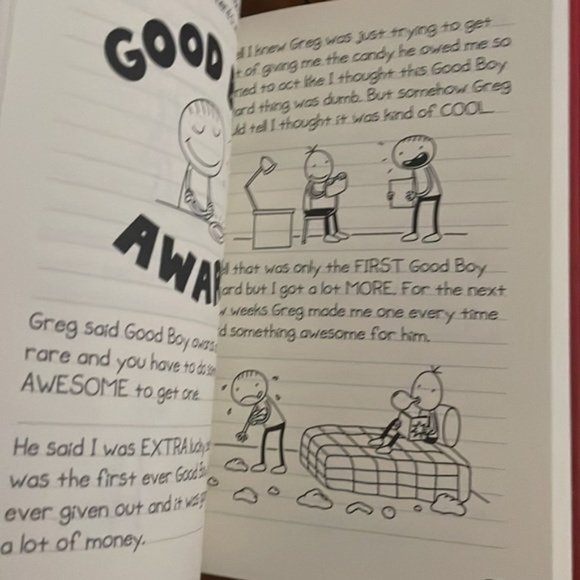 GOOD
AWA
Greg said Good Boy
rare and you have to do
AWESOME to get one.
He said I was EXTRA
was the first ever Good
ever given out and it was
a lot of money.
I knew Greg was just trying to get
of giving me the candy he owed me so
to act like I thought this Good Boy
thing was dumb. But somehow Greg
tell I thought it was kind of COOL.
that was only the FIRST Good Boy
but I got a lot MORE. For the next
weeks Greg made me one every time
something awesome for him.